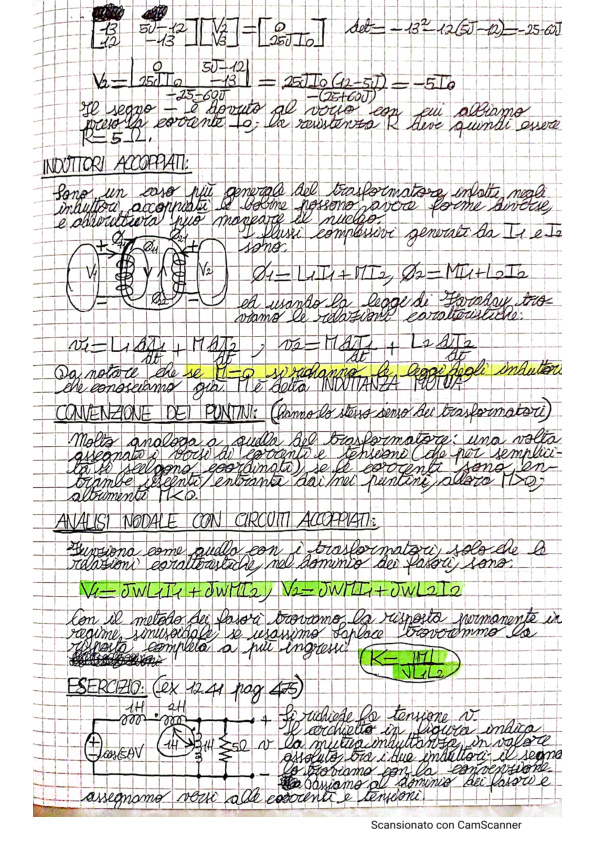 [13 5J-12
12 -13] [V2
V3] = [0
25JI0] det = -13² - 12(5J-12) = -25-60J
V2 = |0 5J-12
25JI0 -13| / -25-60J = 25JI0(12-5J) / -(25+60J) = -5I0
Il segno - è dovuto al verso con cui abbiamo
preso la corrente I0; la resistenza R deve quindi essere
R=5Ω.
INDUTTORI ACCOPPIATI:
Sono un caso più generale del trasformatore, infatti negli
induttori accoppiati le bobine possono avere forme diverse,
e addirittura può mancare il nucleo.
I flussi complessivi generati da I1 e I2
sono:
V1 V2
Ø1=L1I1+MI2, Ø2=MI1+L2I2
ed usando la legge di Faraday tro-
viamo le relazioni caratteristiche:
v1=L1 dI1/dt + M dI2/dt ; v2=M dI1/dt + L2 dI2/dt
Da notare che se M=0 si richanno le leggi degli induttori
che conosciamo già. M è detta INDUTTANZA MUTUA.
CONVENZIONE DEI PUNTINI: (hanno lo stesso senso dei trasformatori)
Molto analoga a quella del trasformatore: una volta
assegnate i versi di correnti e tensioni (che per semplici-
tà si scelgono coordinati), se le correnti sono en-
trambe uscenti/entranti dai/nei puntini, allora M>0;
altrimenti M<0.
ANALISI NODALE CON CIRCUITI ACCOPPIATI:
Funziona come quella con i trasformatori, solo che le
relazioni caratteristiche, nel dominio dei fasori, sono:
V1=JWL1I1+JWMI2, V2=JWMI1+JWL2I2
Con il metodo dei fasori troviamo la risposta permanente in
regime sinusoidale, se usassimo Laplace troveremmo la
risposta completa a più ingressi.
K = |M| / √L1L2
ESERCIZIO: (ex 12.41 pag 475)
1H 2H
1H 1H 5Ω v + -
Si richiede la tensione v.
Il archietto in figura indica
la mutua induttanza, in valore
assoluto, tra i due induttori: il segno
lo troviamo con la convenzione.
Passiamo al dominio dei fasori e
assegnamo versi alle correnti e tensioni.
Scansionato con CamScanner